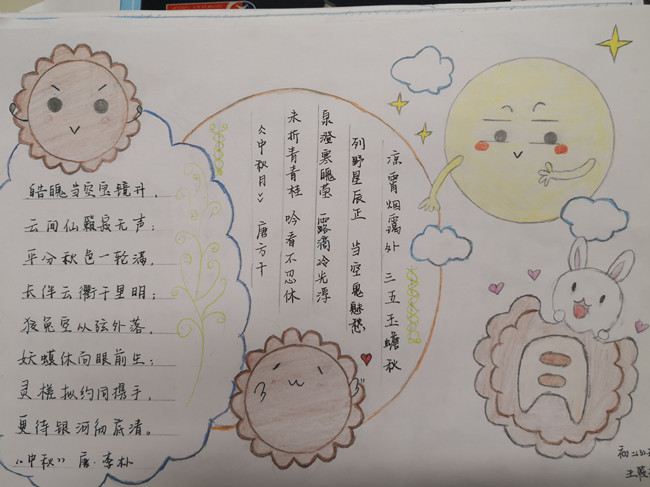 皓魄当空宝镜升,
云间仙籁寂无声;
平分秋色一轮满,
长伴云衢千里明;
狡兔空从弦外落,
妖蟆休向眼前生;
灵槎拟约同携手,
更待银河彻底清。
《中秋》 唐·李朴
凉霄烟霭外 三五玉蟾秋
列野星辰正 当空鬼魅愁
泉澄寒魄莹 露滴冷光浮
未折青青桂 吟看不忍休
《中秋月》 唐方干
月
初二
王